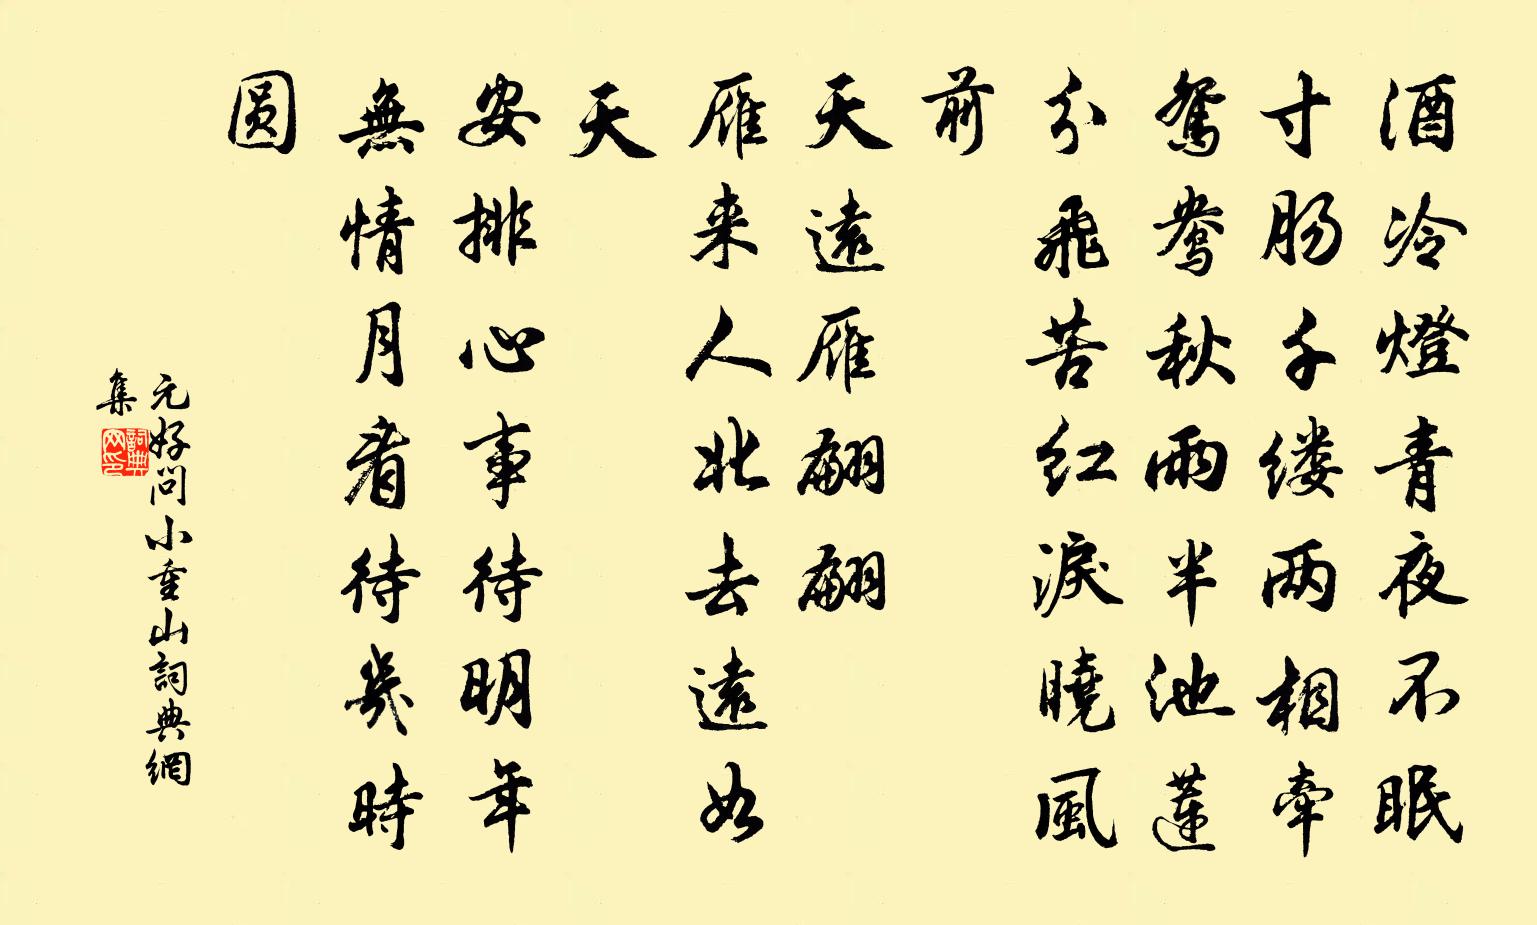 酒冷燈青夜不眠
寸肠千缕两相牽
鴛鴦秋雨半池蓮
分飛苦红淚曉風
前
天遠雁翩翩
雁来人北去遠如
天
安排心事待明年
無情月看待幾時
圆
元好问小重山詞典網
集
詞典網印